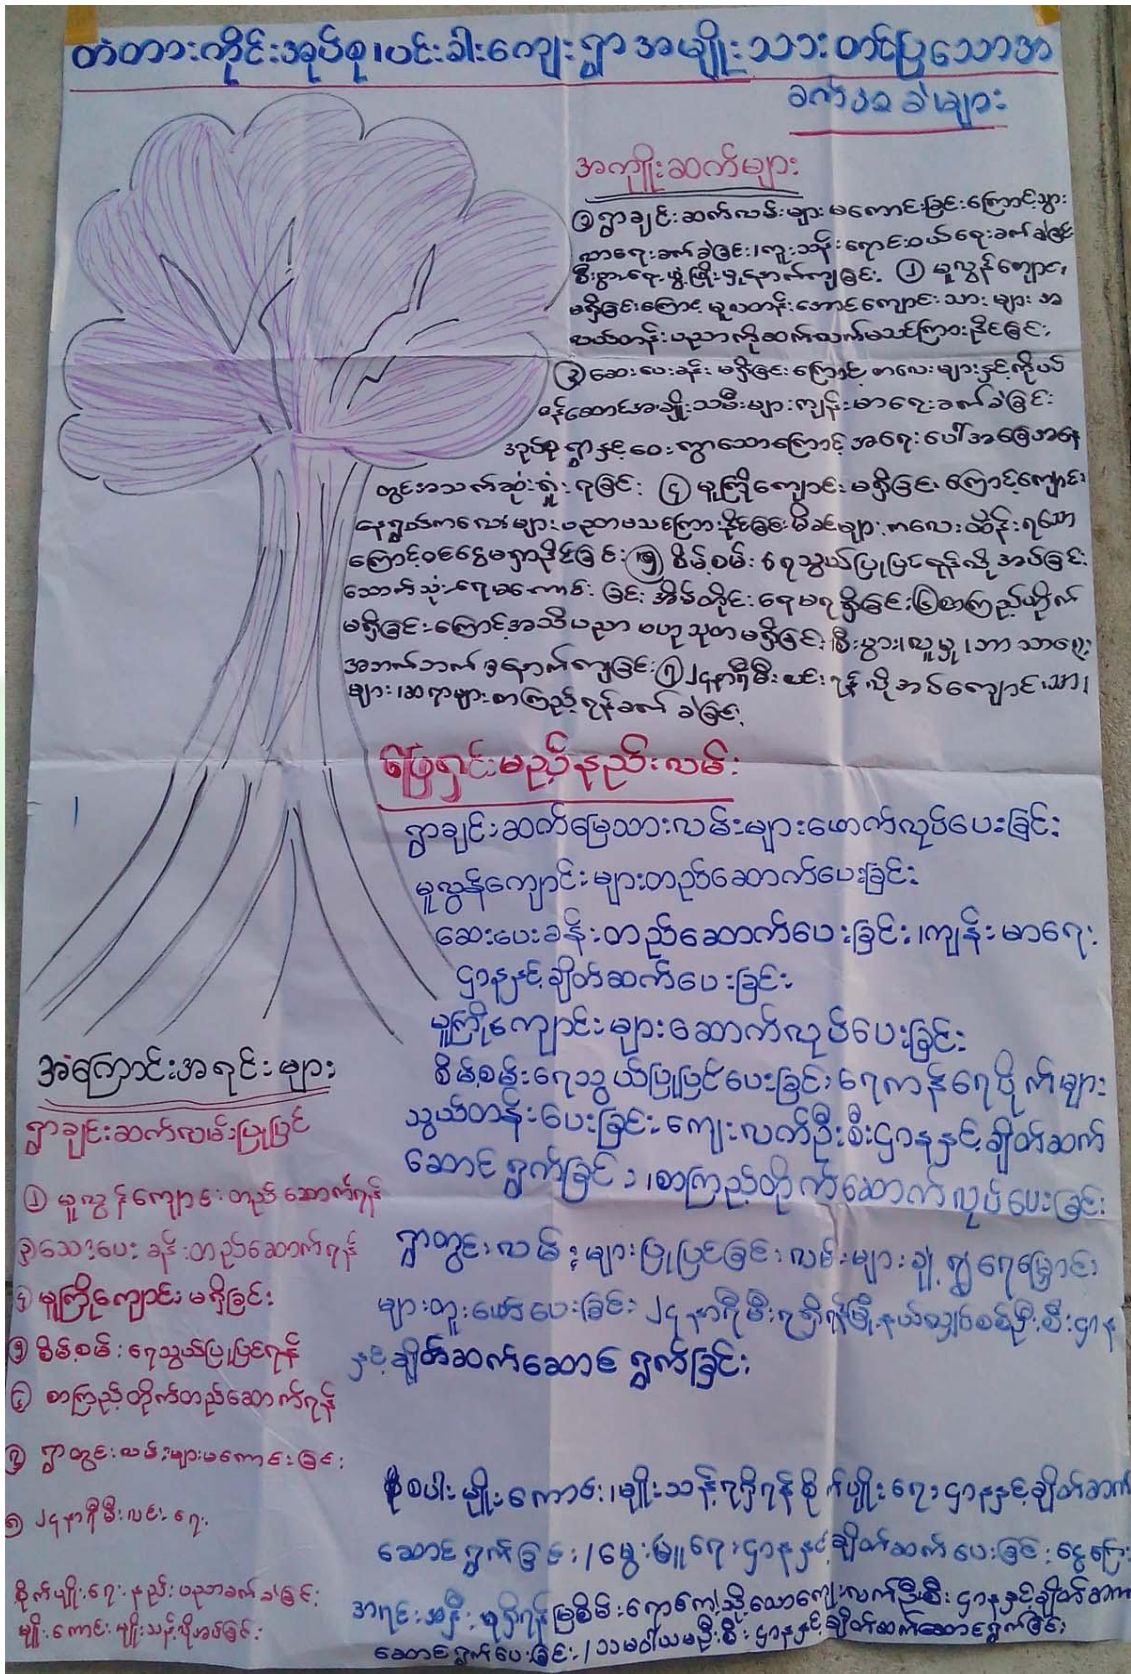 တံတားကိုင်းအုပ်စု၊ပင်းခါးကျေးရွာအမျိုးသားတင်ပြသောအ
ခက်အခဲများ
အကျိုးဆက်များ
၁ ရွာချင်းဆက်လမ်းများ မကောင်းခြင်းကြောင့်သွား
လာရေးခက်ခဲခြင်း၊ကူးသန်းရောင်းဝယ်ရေးခက်ခဲခြင်း
စီးပွားရေးဖွံ့ဖြိုးမှုနောက်ကျခြင်း ၂ မူလွန်ကျောင်း
မရှိခြင်းကြောင့် မူလတန်းအောင်ကျောင်းသားများ အ
လယ်တန်းပညာကိုဆက်လက်မသင်ကြားနိုင်ခြင်း
၃ ဆေးပေးခန်း မရှိခြင်းကြောင့် ကလေးများနှင့်ကိုယ်
ဝန်ဆောင်အမျိုးသမီးများကျန်းမာရေးခက်ခဲခြင်း
အုပ်စုရွာနှင့်ဝေးကွာသောကြောင့် အရေးပေါ်အခြေအနေ
တွင်အသက်ဆုံးရှုံးရခြင်း ၄ မူကြိုကျောင်း မရှိခြင်းကြောင့်ကျောင်း
နေရွယ်ကလေးများပညာမသင်ကြားနိုင်ခြင်းမိခင်များကလေးထိန်းရသော
ကြောင့်ဝင်ငွေမရှာနိုင်ခြင်း ၅ စိမ့်စမ်းရေသွယ်ပြုပြင်ရန်လိုအပ်ခြင်း
သောက်သုံးရေမကောင်းခြင်း အိမ်တိုင်းရေမရရှိခြင်း ၆ စာကြည့်တိုက်
မရှိခြင်းကြောင့်အသိပညာ ဗဟုသုတမရှိခြင်း စီးပွား၊လူမှု၊ဘာသာရေး
အဘက်ဘက်မှနောက်ကျခြင်း ၇ ၂၄နာရီမီးလင်းရန်လိုအပ်ကျောင်းသား၊
များ၊ဆရာများစာကြည့်ရန်ခက်ခဲခြင်း
ဖြေရှင်းမည့်နည်းလမ်း
ရွာချင်းဆက်မြေသားလမ်းများဖောက်လုပ်ပေးခြင်း
မူလွန်ကျောင်းများတည်ဆောက်ပေးခြင်း
ဆေးပေးခန်းတည်ဆောက်ပေးခြင်း၊ကျန်းမာရေး
ဌာနနှင့်ချိတ်ဆက်ပေးခြင်း
မူကြိုကျောင်းများဆောက်လုပ်ပေးခြင်း
စိမ့်စမ်းရေသွယ်ပြုပြင်ပေးခြင်း၊ရေကန်ရေပိုက်များ
သွယ်တန်းပေးခြင်းကျေးလက်ဦးစီးဌာနနှင့်ချိတ်ဆက်
ဆောင်ရွက်ခြင်း၊စာကြည့်တိုက်ဆောက်လုပ်ပေးခြင်း
ရွာတွင်းလမ်းများပြုပြင်ခြင်းလမ်းများချဲ့၍ရေမြောင်း
များတူးဖော်ပေးခြင်း၂၄နာရီမီးရရှိရန်မြို့နယ်လျှပ်စစ်ဦးစီးဌာန
နှင့်ချိတ်ဆက်ဆောင်ရွက်ခြင်း
စပါးမျိုးကောင်း၊မျိုးသန့်ရရှိရန်စိုက်ပျိုးရေးဌာနနှင့်ချိတ်ဆက်
ဆောင်ရွက်ခြင်း၊မွေးမြူရေးဌာနနှင့်ချိတ်ဆက်ပေးခြင်းငွေကြေး
အရင်းအနှီးရရှိရန်မြစိမ်းရောင်ကဲ့သို့သောကျေးလက်ဦးစီးဌာနနှင့်ချိတ်ဆက်
ဆောင်ရွက်ပေးခြင်း၊သမဝါယမဦးစီးဌာနနှင့်ချိတ်ဆက်ဆောင်ရွက်ခြင်း
အကြောင်းအရင်းများ
ရွာချင်းဆက်လမ်းပြုပြင်
၂ မူလွန်ကျောင်းတည်ဆောက်ရန်
၃ ဆေးပေးခန်းတည်ဆောက်ရန်
၄ မူကြိုကျောင်းမရှိခြင်း
၅ စိမ့်စမ်းရေသွယ်ပြုပြင်ရန်
၆ စာကြည့်တိုက်တည်ဆောက်ရန်
၇ ရွာတွင်းလမ်းများမကောင်းခြင်း
၈ ၂၄နာရီမီးလင်းရေး
စိုက်ပျိုးရေးနည်းပညာခက်ခဲခြင်း
မျိုးကောင်းမျိုးသန့်လိုအပ်ခြင်း